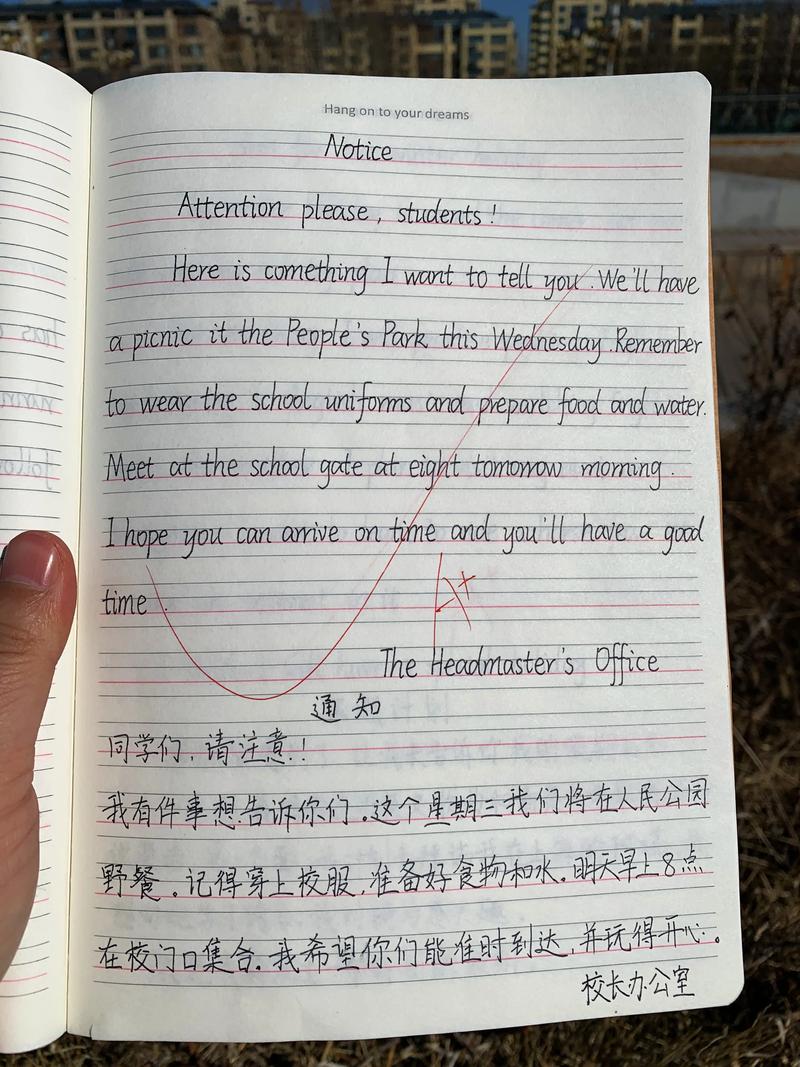 Hang on to your dreams
Notice
Attention please, students!
Here is comething I want to tell you. We'll have
a picnic it the People's Park this Wednesday. Remember
to wear the school uniforms and prepare food and water.
Meet at the school gate at eight tomorrow morning.
I hope you can arrive on time and you'll have a good
time.
The Headmaster's Office
通知
同学们,请注意!
我有件事想告诉你们。这个星期三我们将在人民公园
野餐。记得穿上校服,准备好食物和水。明天早上8点
在校门口集合。我希望你们能准时到达,并玩得开心。
校长办公室